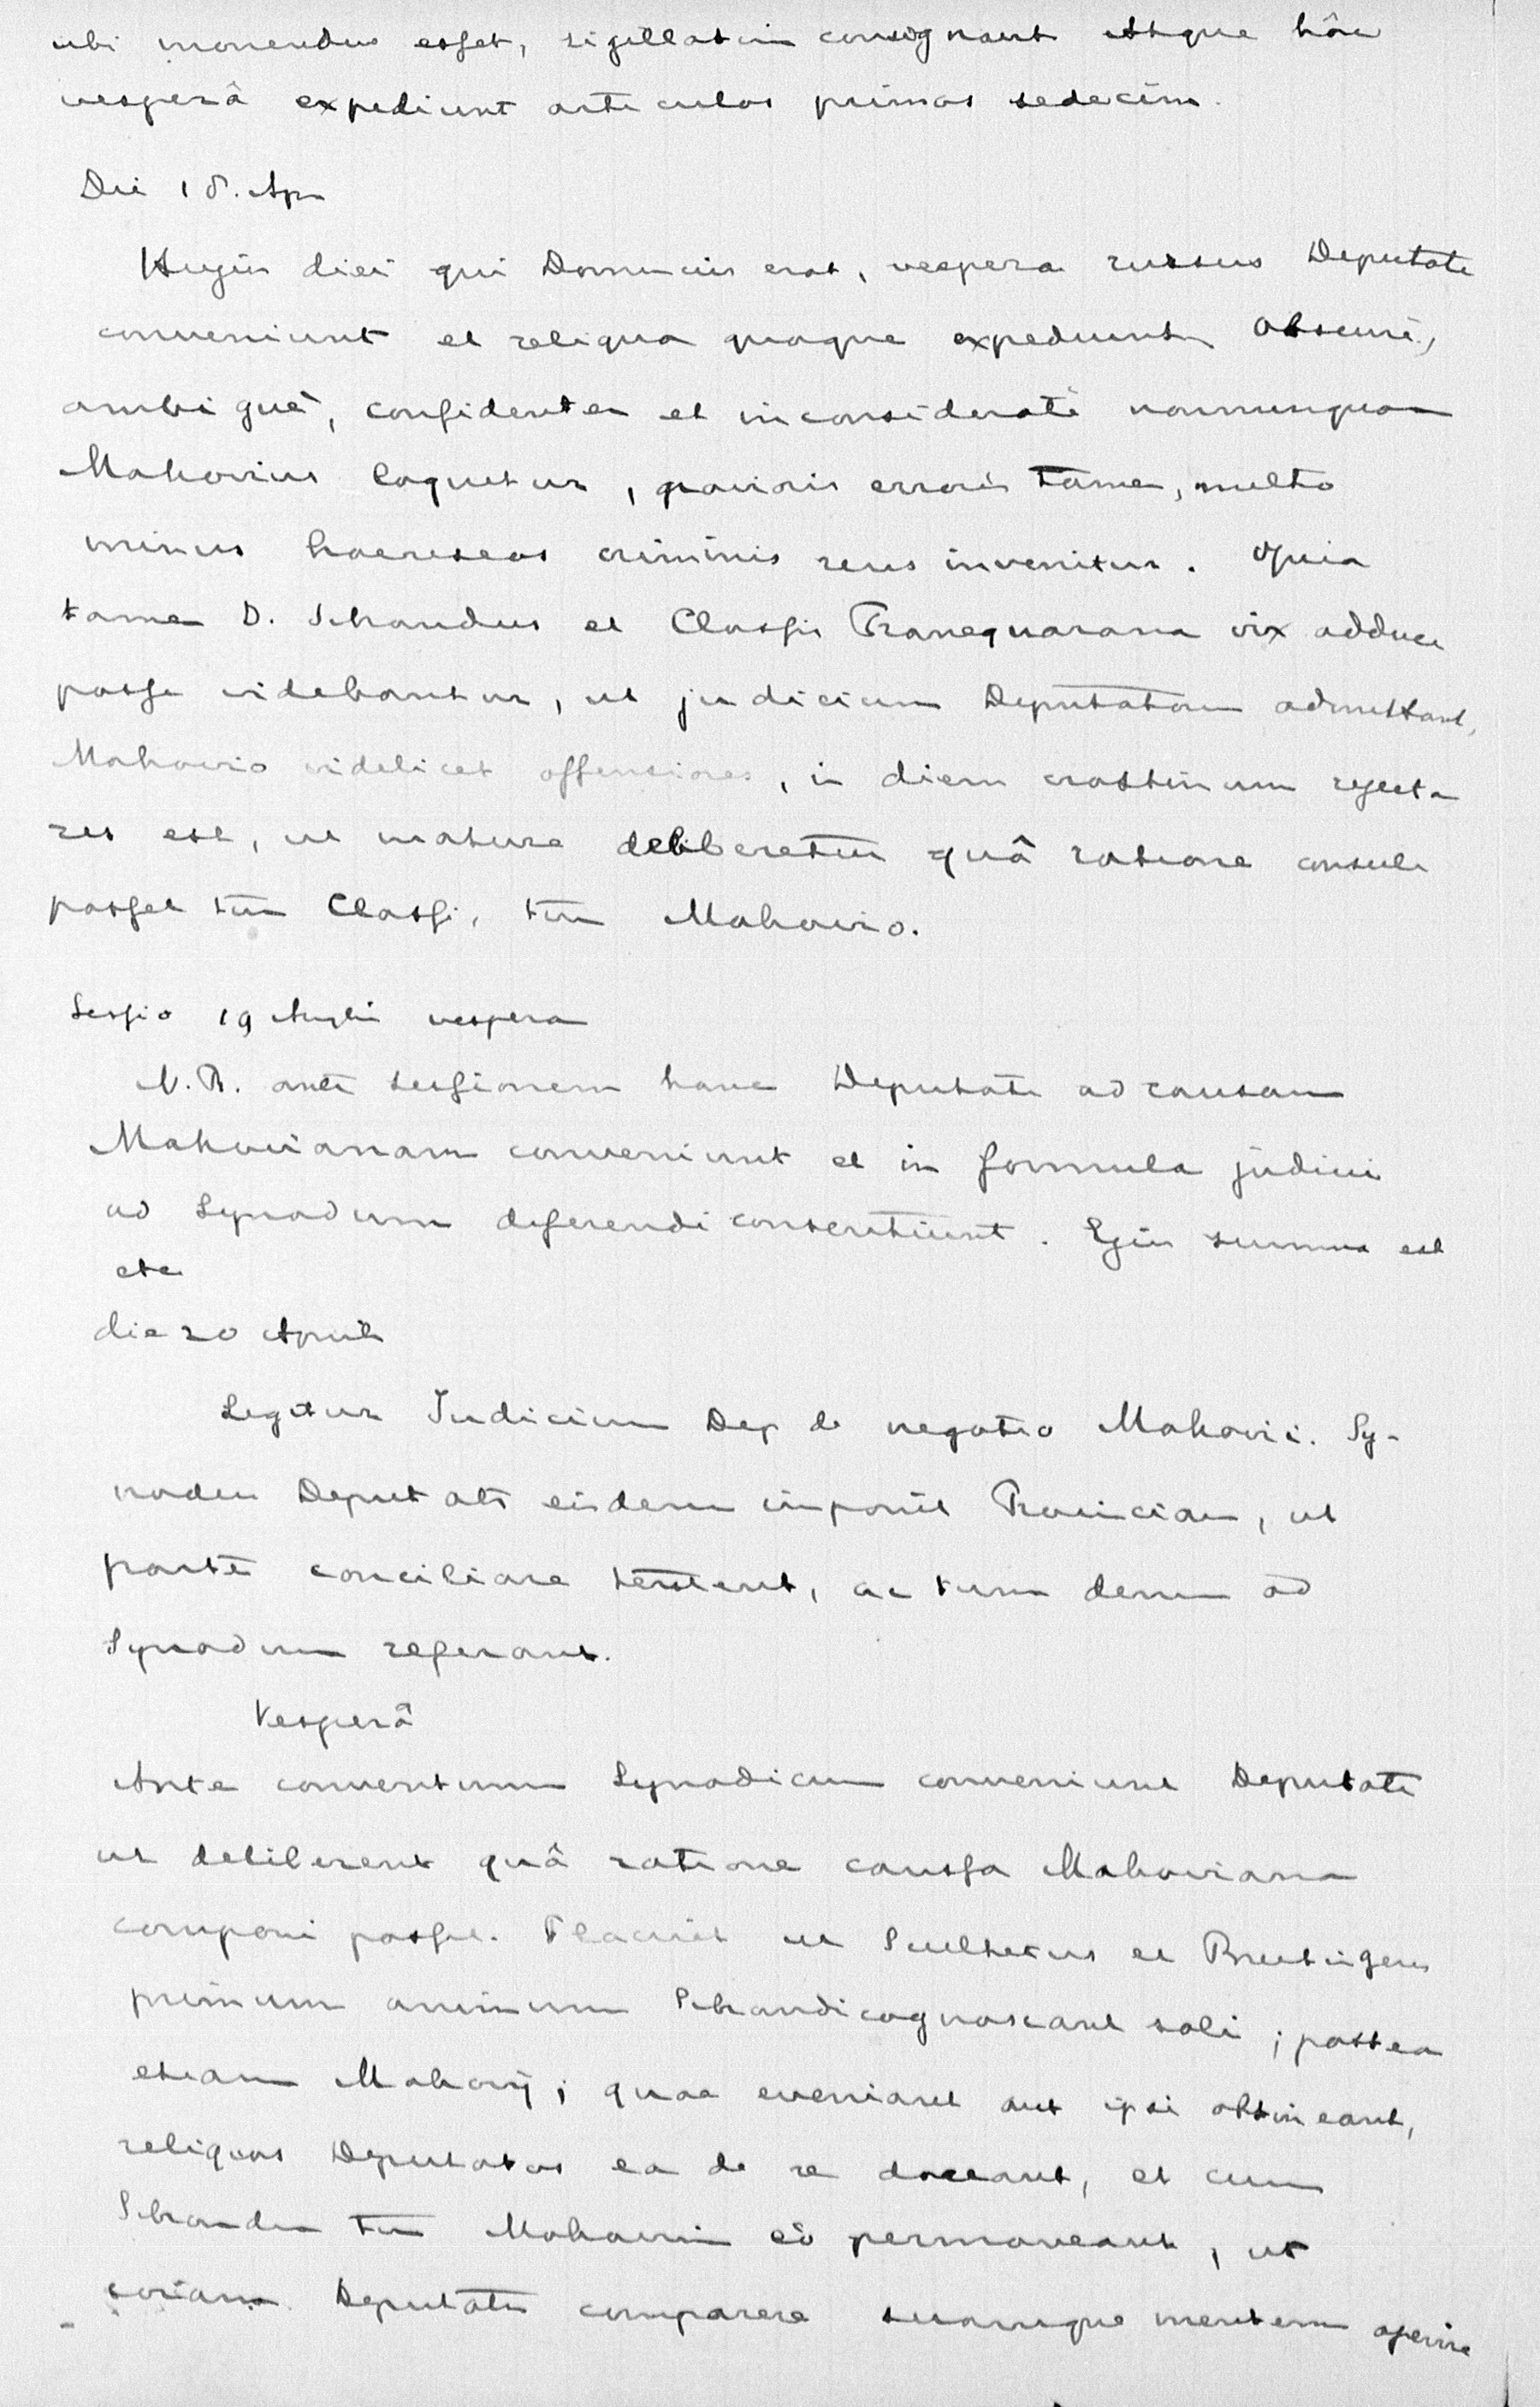 ubi monendus esset, sigillatim consignant atque hâc
vesperâ expediunt articulos primos sedecim.
Die 18. Apr
Hujus diei qui Dominicus erat, vespera rursus Deputati
conveniunt et reliqua quoque expediunt obscurè,
ambiguè, confidenter et inconsideratè nonnunquam
Makovius loquitur, gravioris erroris tamen, multo
minus haereseos criminis reus invenitur. Quia
tamen D. Schrandus et Classis Franequarana vix adduci
posse videbantur, ut judicium Deputatorum admittant,
Makovio videlicet offensiores, in diem crastinum rejecta
res est, ut mature deliberetur quâ ratione consuli
posset tum Classi, tum Makovio.
Sessio 19 Aprilis vespera
N.B. ante sessionem hanc Deputati ad causam
Makovianam conveniunt et in formula judicii
ad Synodum deferendi consentiunt. Ejus summa est
etc
die 20 Aprilis
Legitur Judicium Dep de negotio Makovii. Sy-
nodus Deputatis eisdem imponit Provinciam, ut
partes conciliare tentent, ac tum demum ad
Synodum referant.
Vesperâ
Ante conventum Synodicum conveniunt Deputati
ut deliberent quâ ratione caussa Makoviana
componi posset. Placuit ut Scultetus et Breitingerus
primum animum Schrandi cognoscant soli; postea
etiam Makovij; quae eveniant aut ipsi obtineant,
reliquos Deputatos ea de re doceant, et cum
Schrandum tum Makovium eò permoveant, ut
coram Deputatis comparere suamque mentem aperire